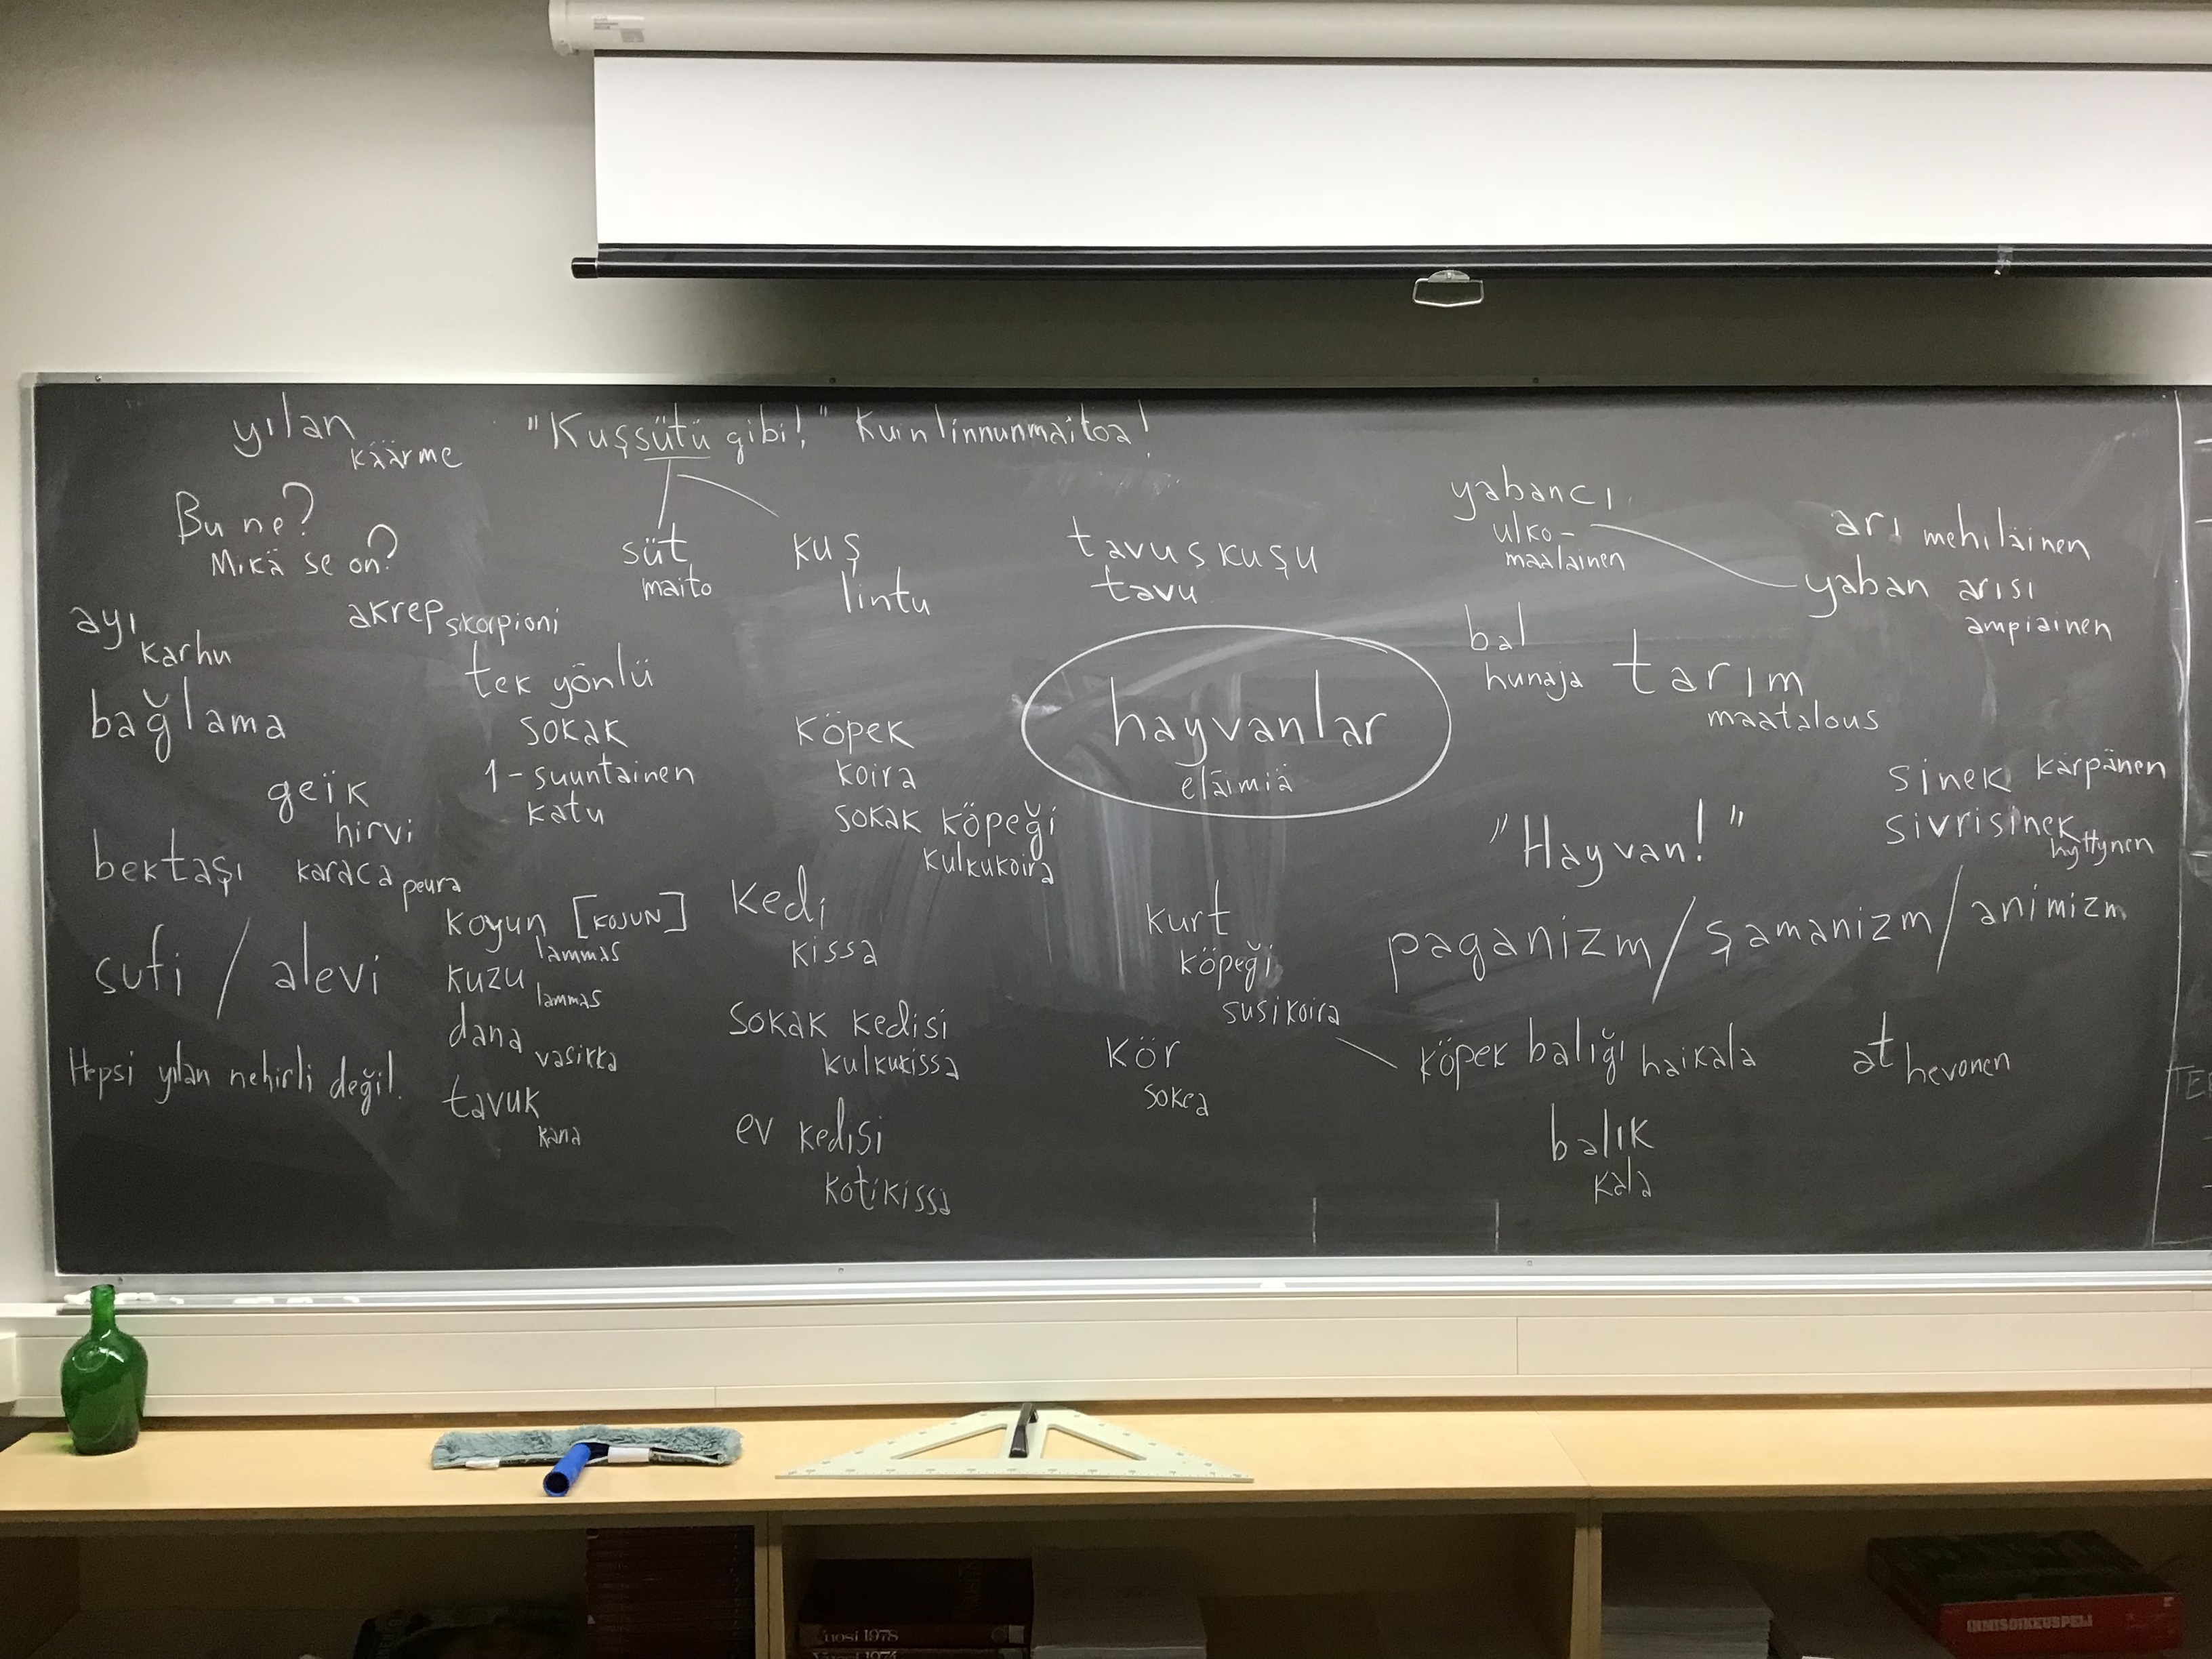 yılan
käärme
"Kuşsütü gibi!" Kuin linnunmaitoa!
Bu ne?
Mikä se on?
süt
maito
kuş
lintu
tavuskuşu
tavu
yabancı
ulko-
maalainen
arı mehiläinen
yaban arısı
ampiainen
ayı
karhu
akrep skorpioni
bal
hunaja
tarım
maatalous
bağlama
tek yönlü
sokak
1-suuntainen
katu
köpek
koira
sokak köpeği
kulkukoira
hayvanlar
eläimiä
geïk
hirvi
sinek kärpänen
sivrisinek
hyttynen
"Hayvan!"
bektaşı
karaca peura
koyun [KOJUN]
lammas
kuzu
lammas
dana
vasikka
tavuk
kana
kedi
kissa
sokak kedisi
kulkukissa
ev kedisi
kotikissa
kurt
köpeği
susikoira
kör
sokea
paganizm / şamanizm / animizm
sufi / alevi
Hepsi yılan nehirli değil.
köpek balığı haikala
balık
kala
at hevonen
IHMISOIKEUSPELI